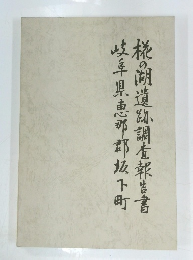 椛の湖遺跡調査報告書
岐阜県恵那郡坂下町